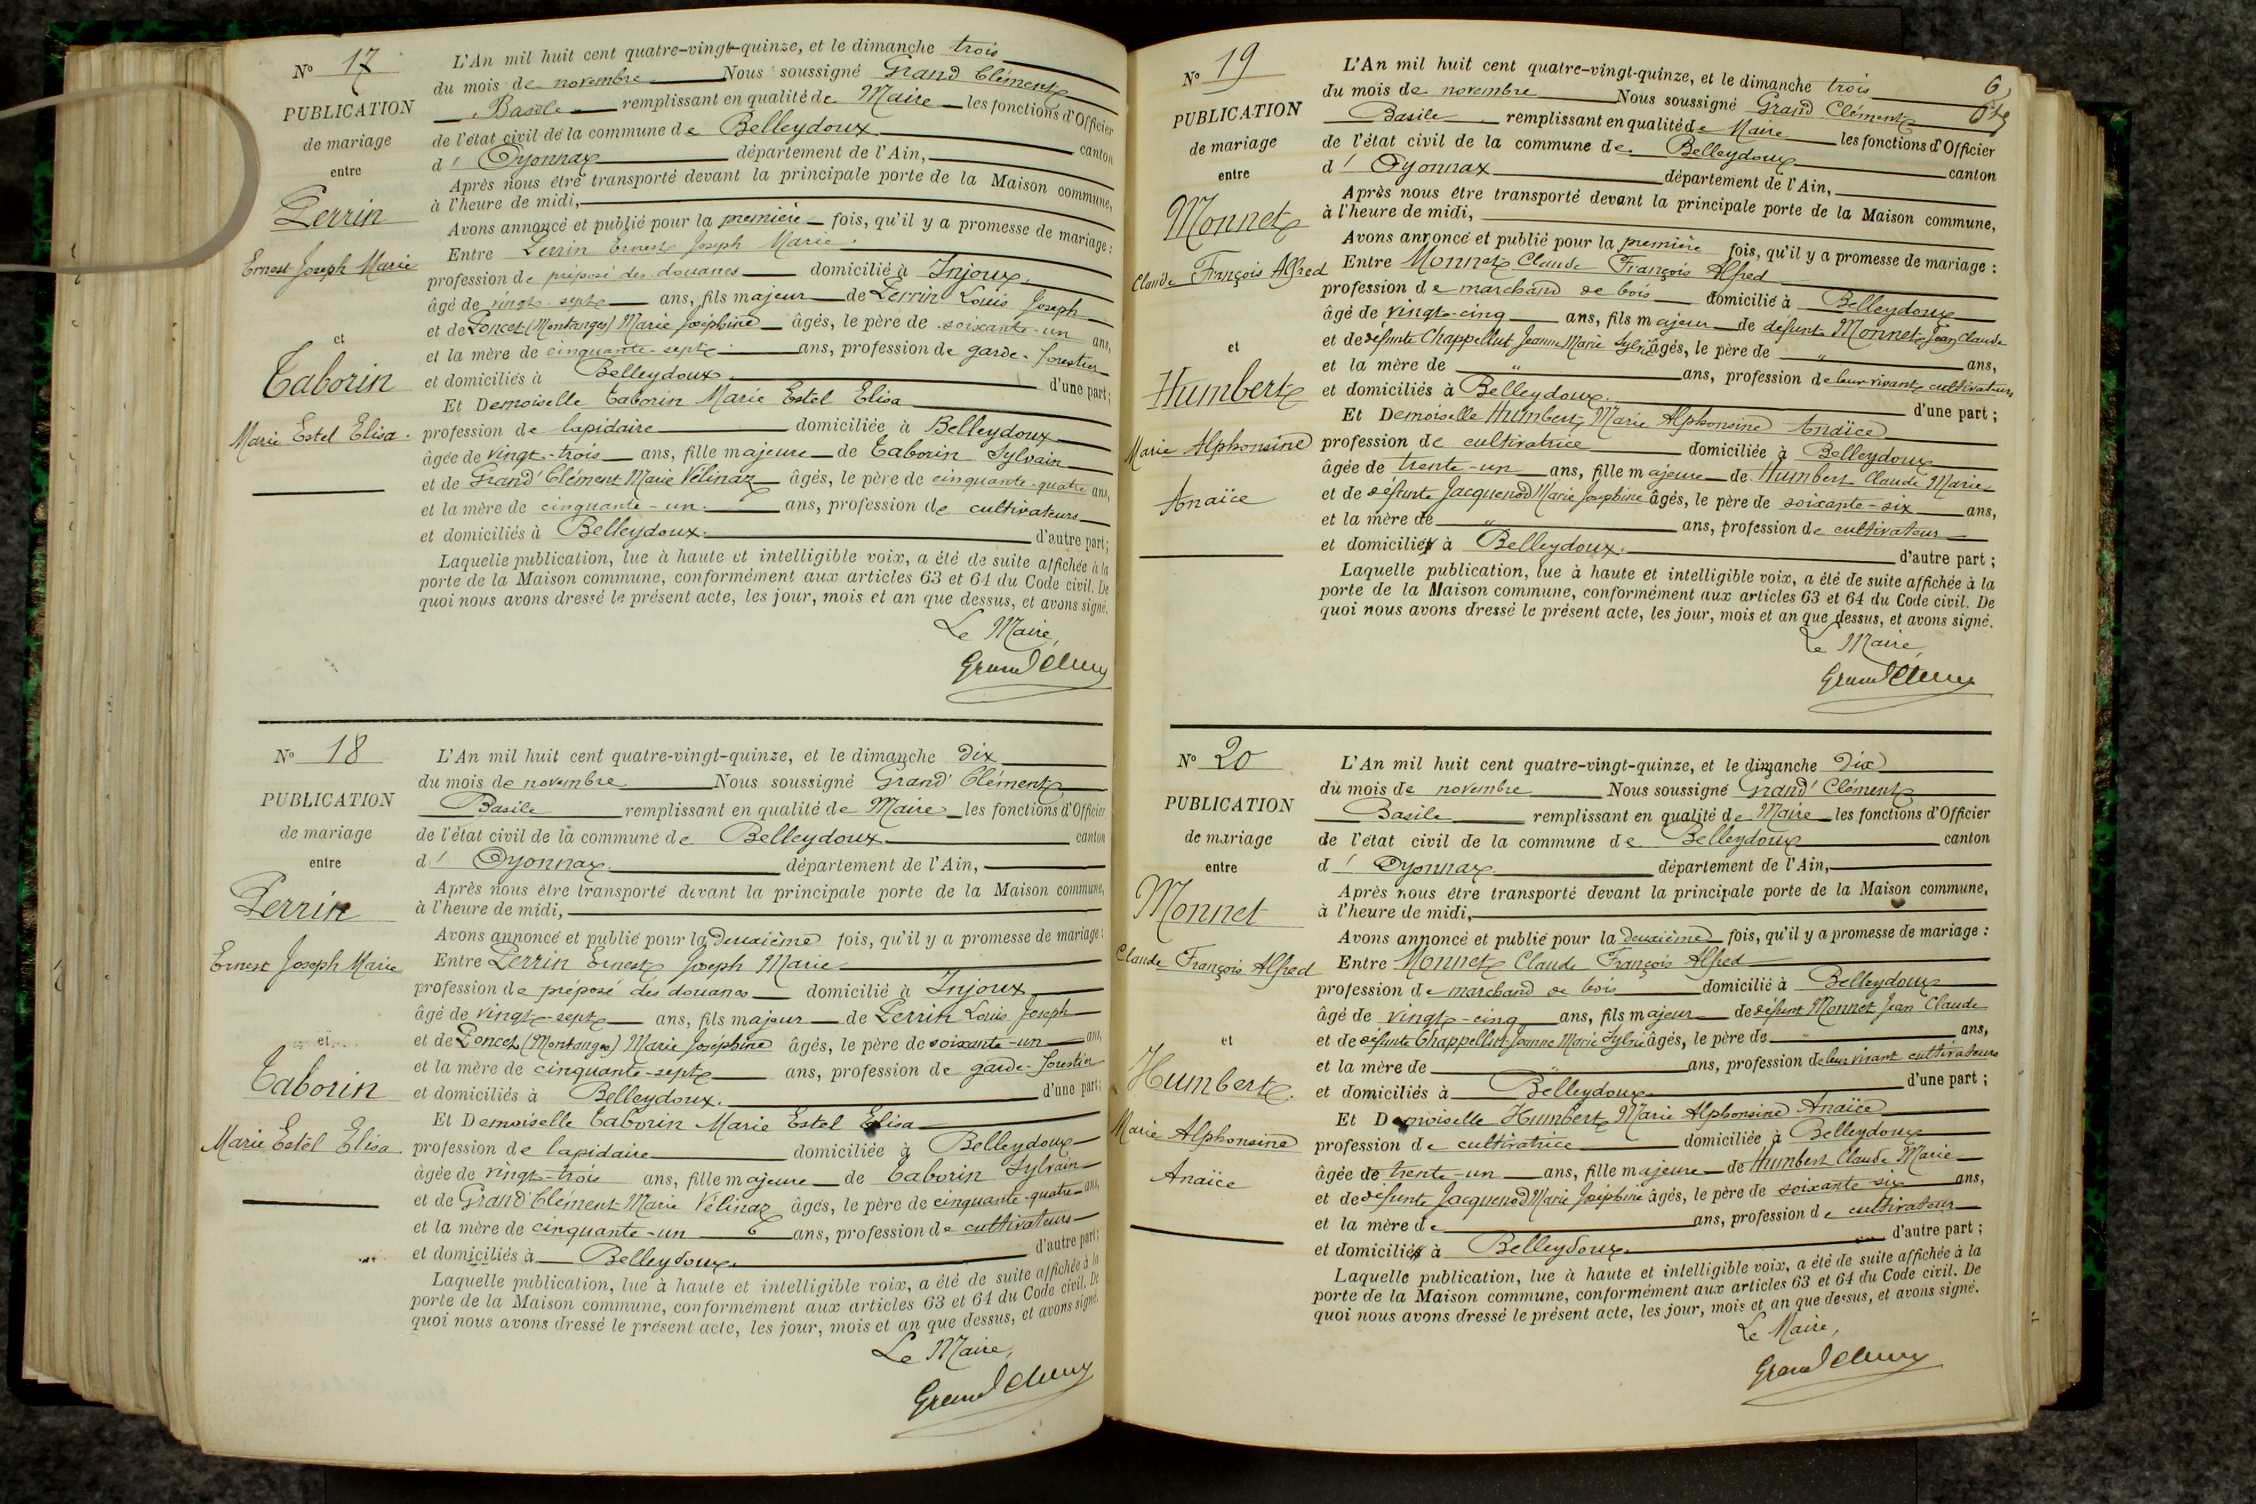 N° 17
PUBLICATION
de mariage
entre
Perrin
Ernest Joseph Marie
et
Taborin
Marie Estel Elisa.
L'An mil huit cent quatre-vingt-quinze, et le dimanche trois
du mois de novembre Nous soussigné Grand Clément
Basile remplissant en qualité de Maire les fonctions d'Officier
de l'état civil de la commune de Belleydoux canton
d' Oyonnax département de l'Ain,
Après nous être transporté devant la principale porte de la Maison commune,
à l'heure de midi,
Avons annoncé et publié pour la première fois, qu'il y a promesse de mariage :
Entre Perrin Ernest Joseph Marie.
profession de préposé des douanes domicilié à Injoux.
âgé de vingt-sept ans, fils majeur de Perrin Louis Joseph
et de Poncet (Montanges) Marie Joséphine âgés, le père de soixante-un ans,
et la mère de cinquante-sept ans, profession de garde-forestier
et domiciliés à Belleydoux. d'une part;
Et Demoiselle Taborin Marie Estel Elisa
profession de lapidaire domiciliée à Belleydoux
âgée de vingt-trois ans, fille majeure de Taborin Sylvain
et de Grand'Clément Marie Vélinaz âgés, le père de cinquante-quatre ans,
et la mère de cinquante-un. ans, profession de cultivateurs
et domiciliés à Belleydoux. d'autre part;
Laquelle publication, lue à haute et intelligible voix, a été de suite affichée à la
porte de la Maison commune, conformément aux articles 63 et 64 du Code civil. De
quoi nous avons dressé le présent acte, les jour, mois et an que dessus, et avons signé.
Le Maire,
Grand Clém
N° 18
PUBLICATION
de mariage
entre
Perrin
Ernest Joseph Marie
et
Taborin
Marie Estel Elisa.
L'An mil huit cent quatre-vingt-quinze, et le dimanche dix
du mois de novembre Nous soussigné Grand' Clément
Basile remplissant en qualité de Maire les fonctions d'Officier
de l'état civil de la commune de Belleydoux canton
d' Oyonnax département de l'Ain,
Après nous être transporté devant la principale porte de la Maison commune,
à l'heure de midi,
Avons annoncé et publié pour la deuxième fois, qu'il y a promesse de mariage :
Entre Perrin Ernest Joseph Marie
profession de préposé des douanes domicilié à Injoux
âgé de vingt-sept ans, fils majeur de Perrin Louis Joseph
et de Poncet (Montanges) Marie Joséphine âgés, le père de soixante-un ans,
et la mère de cinquante-sept ans, profession de garde-forestier
et domiciliés à Belleydoux. d'une part;
Et Demoiselle Taborin Marie Estel Elisa
profession de lapidaire domiciliée à Belleydoux
âgée de vingt-trois ans, fille majeure de Taborin Sylvain
et de Grand'Clément Marie Vélinaz âgés, le père de cinquante-quatre ans,
et la mère de cinquante-un ans, profession de cultivateurs
et domiciliés à Belleydoux. d'autre part;
Laquelle publication, lue à haute et intelligible voix, a été de suite affichée à la
porte de la Maison commune, conformément aux articles 63 et 64 du Code civil. De
quoi nous avons dressé le présent acte, les jour, mois et an que dessus, et avons signé.
Le Maire,
Grand Clém
N° 19
PUBLICATION
de mariage
entre
Monnet
Claude François Alfred
et
Humbert
Marie Alphonsine
Anaïce
L'An mil huit cent quatre-vingt-quinze, et le dimanche trois
du mois de novembre Nous soussigné Grand Clément
Basile remplissant en qualité de Maire les fonctions d'Officier
de l'état civil de la commune de Belleydoux canton
d' Oyonnax département de l'Ain,
Après nous être transporté devant la principale porte de la Maison commune,
à l'heure de midi,
Avons annoncé et publié pour la première fois, qu'il y a promesse de mariage :
Entre Monnet Claude François Alfred
profession de marchand de bois domicilié à Belleydoux
âgé de vingt-cinq ans, fils majeur de défunt Monnet Jean Claude
et de défunte Chappellut Jeanne Marie Sylvie âgés, le père de " ans,
et la mère de " ans, profession de leur vivant cultivateurs
et domiciliés à Belleydoux. d'une part ;
Et Demoiselle Humbert Marie Alphonsine Anaïce
profession de cultivatrice domiciliée à Belleydoux
âgée de trente-un ans, fille majeure de Humbert Claude Marie
et de défunte Jacquenod Marie Joséphine âgés, le père de soixante-six ans,
et la mère de " ans, profession de cultivateur
et domicilié à Belleydoux. d'autre part ;
Laquelle publication, lue à haute et intelligible voix, a été de suite affichée à la
porte de la Maison commune, conformément aux articles 63 et 64 du Code civil. De
quoi nous avons dressé le présent acte, les jour, mois et an que dessus, et avons signé.
Le Maire,
Grand Clém
N° 20
PUBLICATION
de mariage
entre
Monnet
Claude François Alfred
et
Humbert
Marie Alphonsine
Anaïce
L'An mil huit cent quatre-vingt-quinze, et le dimanche dix
du mois de novembre Nous soussigné Grand' Clément
Basile remplissant en qualité de Maire les fonctions d'Officier
de l'état civil de la commune de Belleydoux canton
d' Oyonnax département de l'Ain,
Après nous être transporté devant la principale porte de la Maison commune,
à l'heure de midi,
Avons annoncé et publié pour la deuxième fois, qu'il y a promesse de mariage :
Entre Monnet Claude François Alfred
profession de marchand de bois domicilié à Belleydoux
âgé de vingt-cinq ans, fils majeur de défunt Monnet Jean Claude
et de défunte Chappellut Jeanne Marie Sylvie âgés, le père de ans,
et la mère de " ans, profession de leur vivant cultivateurs
et domiciliés à Belleydoux d'une part ;
Et Demoiselle Humbert Marie Alphonsine Anaïce
profession de cultivatrice domiciliée à Belleydoux
âgée de trente-un ans, fille majeure de Humbert Claude Marie
et de défunte Jacquenod Marie Joséphine âgés, le père de soixante-six ans,
et la mère de ans, profession de cultivateur
et domicilié à Belleydoux. d'autre part ;
Laquelle publication, lue à haute et intelligible voix, a été de suite affichée à la
porte de la Maison commune, conformément aux articles 63 et 64 du Code civil. De
quoi nous avons dressé le présent acte, les jour, mois et an que dessus, et avons signé.
Le Maire,
Grand Clém